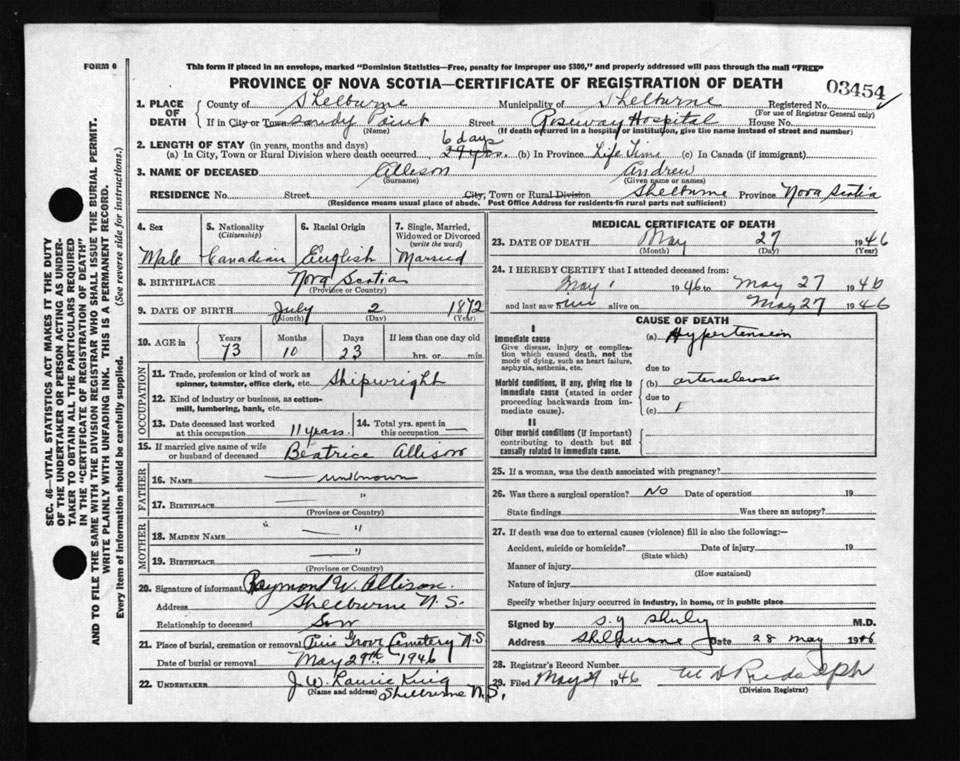 FORM 6
This form if placed in an envelope, marked "Dominion Statistics—Free, penalty for improper use $300," and properly addressed will pass through the mail "FREE"
PROVINCE OF NOVA SCOTIA—CERTIFICATE OF REGISTRATION OF DEATH
03454
1. PLACE OF DEATH
County of Shelburne Municipality of Shelburne Registered No.
(For use of Registrar General only)
If in City or Town Sandy Point Street Roseway Hospital House No.
(Name) (If death occurred in a hospital or institution, give the name instead of street and number)
2. LENGTH OF STAY (in years, months and days) 6 days
(a) In City, Town or Rural Division where death occurred 29 yrs. (b) In Province Life Time (c) In Canada (if immigrant)
3. NAME OF DECEASED Allison Andrew
(Surname) (Given name or names)
RESIDENCE No. Street City, Town or Rural Division Shelburne Province Nova Scotia
(Residence means usual place of abode. Post Office Address for residents in rural parts not sufficient)
4. Sex Male
5. Nationality (Citizenship) Canadian
6. Racial Origin English
7. Single, Married, Widowed or Divorced (write the word) Married
8. BIRTHPLACE Nova Scotia
(Province or Country)
9. DATE OF BIRTH July 2 1872
(Month) (Day) (Year)
10. AGE in Years Months Days If less than one day old
73 10 23 hrs. or min.
OCCUPATION
11. Trade, profession or kind of work as spinner, teamster, office clerk, etc. Shipwright
12. Kind of industry or business, as cotton-mill, lumbering, bank, etc.
13. Date deceased last worked at this occupation 11 years.
14. Total yrs. spent in this occupation —
15. If married give name of wife or husband of deceased Beatrice Allison
FATHER
16. NAME — unknown
17. BIRTHPLACE — "
(Province or Country)
MOTHER
18. MAIDEN NAME " — "
19. BIRTHPLACE — "
(Province or Country)
20. Signature of informant Raymond W. Allison.
Address Shelburne N.S.
Relationship to deceased Son
21. Place of burial, cremation or removal Pine Grove Cemetery N.S
Date of burial or removal May 29th 1946
22. UNDERTAKER J. W. Laurie King
(Name and address) Shelburne N.S.
MEDICAL CERTIFICATE OF DEATH
23. DATE OF DEATH May 27 1946
(Month) (Day) (Year)
24. I HEREBY CERTIFY that I attended deceased from:
May 1 1946 to May 27 1946
and last saw him alive on May 27 1946
CAUSE OF DEATH
I
Immediate cause
Give disease, injury or complication which caused death, not the mode of dying, such as heart failure, asphyxia, asthenia, etc.
(a) Hypertension
due to
Morbid conditions, if any, giving rise to immediate cause (stated in order proceeding backwards from immediate cause).
(b) arterosclerosis
due to
(c)
II
Other morbid conditions (if important) contributing to death but not causally related to immediate cause.
25. If a woman, was the death associated with pregnancy?
26. Was there a surgical operation? No Date of operation 19
State findings Was there an autopsy?
27. If death was due to external causes (violence) fill in also the following:—
Accident, suicide or homicide? Date of injury 19
(State which)
Manner of injury
(How sustained)
Nature of injury
Specify whether injury occurred in industry, in home, or in public place
Signed by M.D.
Address Shelburne Date 28 May 1946
28. Registrar's Record Number
29. Filed May 29 1946 Rudolph
(Division Registrar)
SEC. 46—VITAL STATISTICS ACT MAKES IT THE DUTY
OF THE UNDERTAKER OR PERSON ACTING AS UNDER-
TAKER TO OBTAIN ALL THE PARTICULARS REQUIRED
IN THE "CERTIFICATE OF REGISTRATION OF DEATH"
AND TO FILE THE SAME WITH THE DIVISION REGISTRAR WHO SHALL ISSUE THE BURIAL PERMIT.
WRITE PLAINLY WITH UNFADING INK. THIS IS A PERMANENT RECORD.
Every item of information should be carefully supplied. (See reverse side for instructions.)